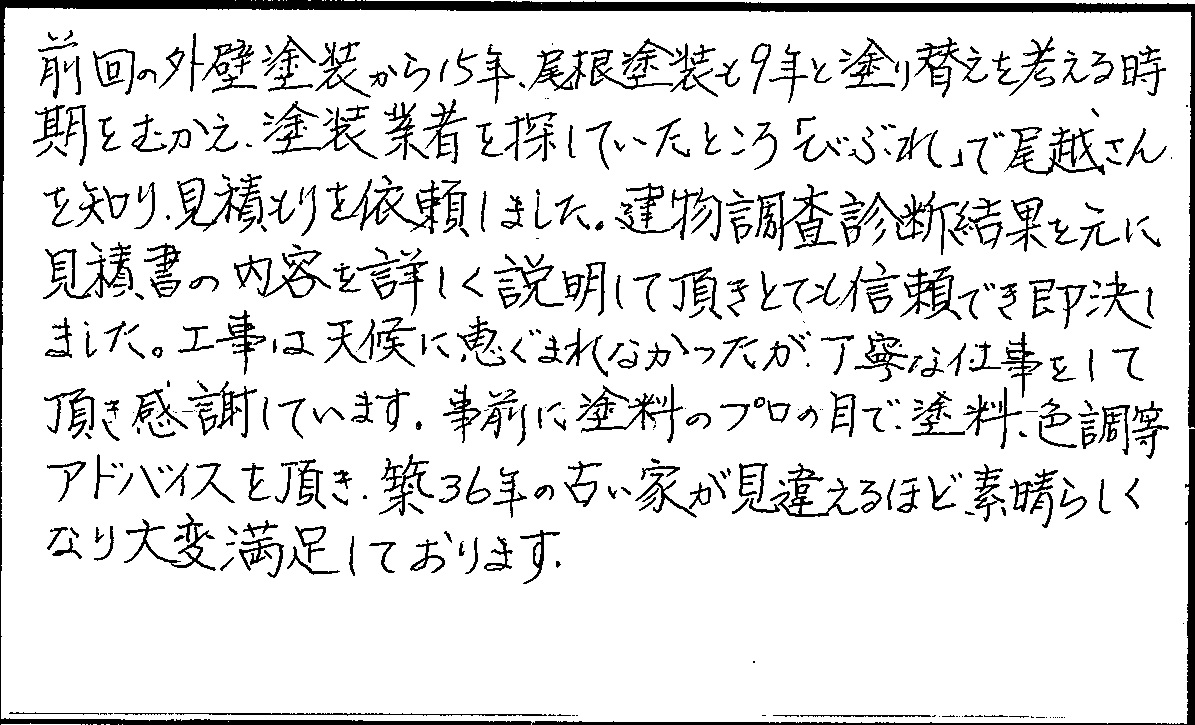 前回の外壁塗装から15年、尾根塗装も9年と塗り替えを考える時
期をむかえ、塗装業者を探していたところ「びぶれ」で尾越さん
を知り、見積もりを依頼しました。建物調査診断結果を元に
見積書の内容を詳しく説明して頂きとても信頼でき即決し
ました。工事は天候に恵ぐまれなかったが、丁寧な仕事をして
頂き感謝しています。事前に塗料のプロの目で、塗料、色調等
アドバイスを頂き、築36年の古い家が見違えるほど素晴らしく
なり大変満足しております。